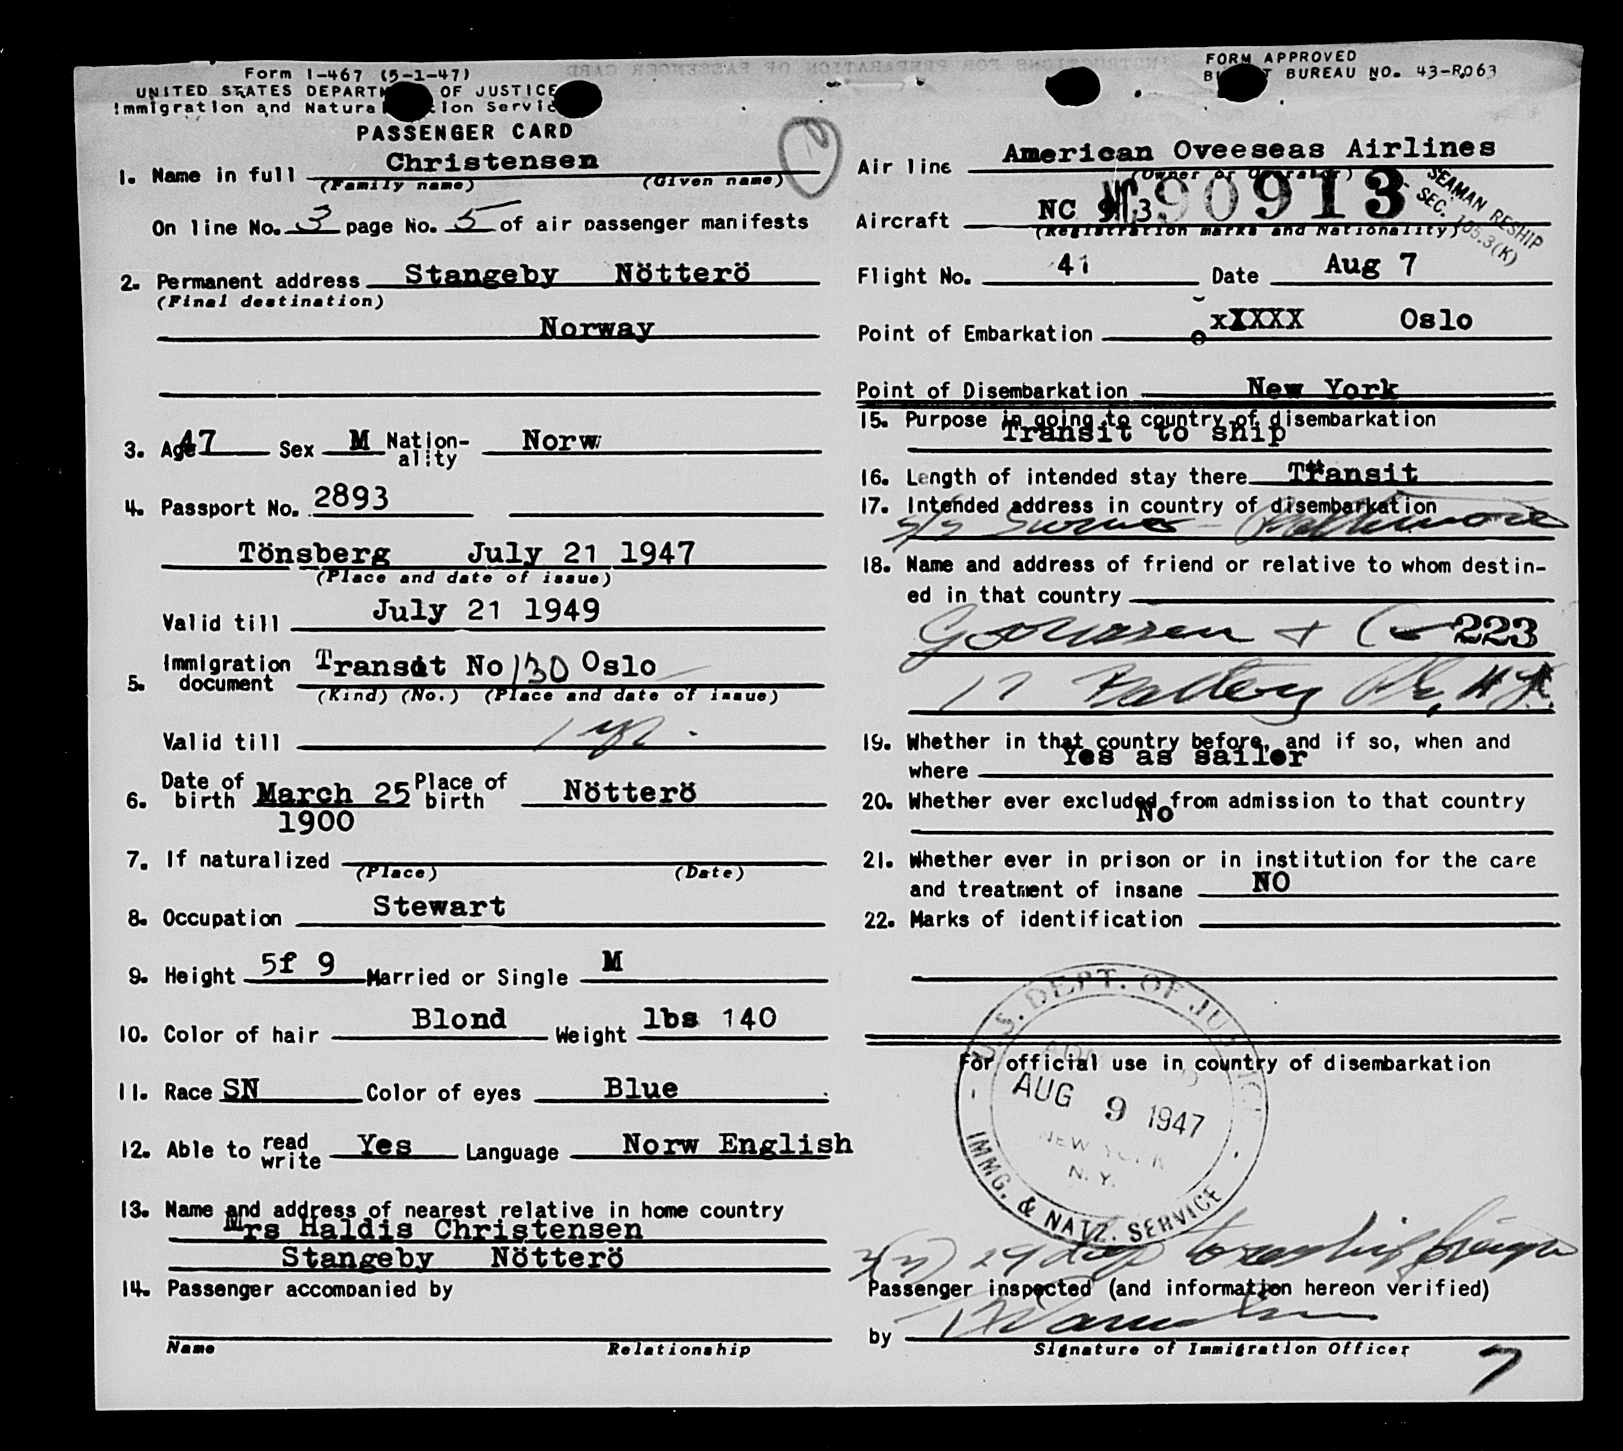 Form I-467 (5-1-47)
UNITED STATES DEPARTM OF JUSTICE
Immigration and Natura tion Servic
PASSENGER CARD
1. Name in full Christensen
(Family name) (Given name)
On line No. 3 page No. 5 of air passenger manifests
2. Permanent address Stangeby Nötterö
(Final destination)
Norway
3. Age 47 Sex M Nation-ality Norw
4. Passport No. 2893
Tönsberg July 21 1947
(Place and date of issue)
Valid till July 21 1949
5. Immigration document Transit No 130 Oslo
(Kind) (No.) (Place and date of issue)
Valid till
6. Date of birth March 25 1900 Place of birth Nötterö
7. If naturalized
(Place) (Date)
8. Occupation Stewart
9. Height 5f 9 Married or Single M
10. Color of hair Blond Weight lbs 140
11. Race SN Color of eyes Blue
12. Able to read write Yes Language Norw English
13. Name and address of nearest relative in home country
Mrs Haldis Christensen
Stangeby Nötterö
14. Passenger accompanied by
Name Relationship
FORM APPROVED
BU T BUREAU NO. 43-R063
Air line American Oveeseas Airlines
(Owner or Operator)
Aircraft NC 90913
(Registration marks and Nationality)
SEAMAN RESHIP
SEC. 105.3(K)
Flight No. 41 Date Aug 7
Point of Embarkation xXXXX Oslo
Point of Disembarkation New York
15. Purpose in going to country of disembarkation
Transit to ship
16. Length of intended stay there Transit
17. Intended address in country of disembarkation
s/s Baltimore
18. Name and address of friend or relative to whom destin-
ed in that country
& Co 223
17 Battery Pl, N.Y.
19. Whether in that country before, and if so, when and
where Yes as sailer
20. Whether ever excluded from admission to that country
No
21. Whether ever in prison or in institution for the care
and treatment of insane NO
22. Marks of identification
For official use in country of disembarkation
U.S. DEPT. OF JUSTICE
AUG 9 1947
NEW YORK
N.Y.
IMMG. & NATZ. SERVICE
29 days to reship foreign
Passenger inspected (and information hereon verified)
by
Signature of Immigration Officer
7